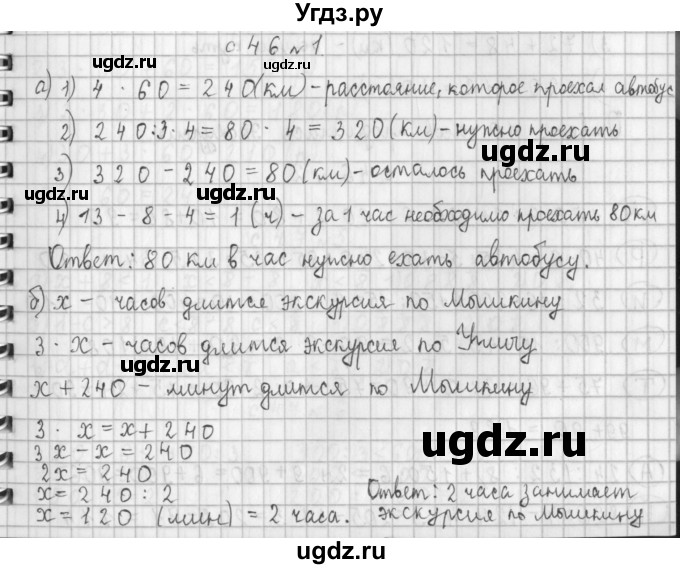 Угдз.ру
с 46 №1
ugdz.ru ugdz.ru
а) 1) 4 · 60 = 240 (км) – расстояние, которое проехал автобус
2) 240:3·4 = 80 · 4 = 320 (км) – нужно проехать
ugdz.ru
3) 320 – 240 = 80 (км) – осталось проехать
ugdz.ru ugdz.ru
4) 13 – 8 – 4 = 1 (ч) – за 1 час необходимо проехать 80 км
Ответ: 80 км в час нужно ехать автобусу.
б) х – часов длится экскурсия по Мышкину
3 · х – часов длится экскурсия по Угличу
ugdz.ru
х + 240 – минут длится по Мышкину
3 · х = х + 240
ugdz.ru
3х – х = 240
2х = 240
х = 240 : 2 Ответ: 2 часа занимает
х = 120 (мин) = 2 часа. экскурсия по Мышкину
ugdz.ru